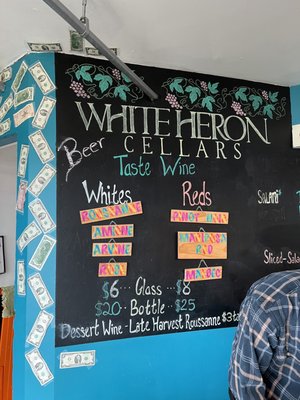 WHITE HERON
CELLARS
Beer
Taste Wine
Whites
Reds
ROUSSANNE
PINOT NOIR
AMICHE
MARIPOSA
RED
ARVINE
MALBEC
$6 ... Glass ... $8
$20 .. Bottle ... $25
Dessert Wine - Late Harvest Roussanne $3
SALAMI
Sliced-